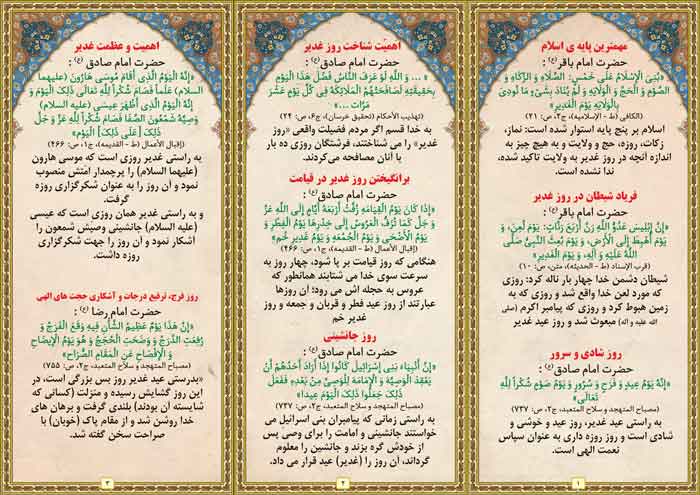 مهمترین پایه ی اسلام
حضرت امام باقر(ع) :
«بُنِیَ الْإِسْلَامُ عَلَی خَمْسٍ: الصَّلَاهِ وَ الزَّکَاهِ وَ
الصَّوْمِ وَ الْحَجِّ وَ الْوَلَایَهِ وَ لَمْ یُنَادَ بِشَیْ‏ءٍ مَا نُودِیَ
بِالْوَلَایَهِ یَوْمَ الْغَدِیرِ»
(الکافی (ط - الإسلامیه)، ج۲، ص: ۲۱)
اسلام بر پنج پایه استوار شده است: نماز،
زکات، روزه، حج و ولایت و به هیچ چیز به
اندازه آنچه در روز غدیر به ولایت تاکید شده،
ندا نشده است.
فریاد شیطان در روز غدیر
حضرت امام باقر(ع) :
«إِنَّ إِبْلِیسَ عَدُوَّ اللَّهِ رَنَّ أَرْبَعَ رَنَّاتٍ: یَوْمَ لُعِنَ، وَ
یَوْمَ أُهْبِطَ إِلَی الْأَرْضِ، وَ یَوْمَ بُعِثَ النَّبِیُّ صَلَّی
اللَّهُ عَلَیْهِ وَ آلِهِ، وَ یَوْمَ الْغَدِیرِ»
(قرب الإسناد (ط - الحدیثه)، متن، ص: ۱۰)
شیطان دشمن خدا چهار بار ناله کرد: روزی
که مورد لعن خدا واقع شد و روزی که به
زمین هبوط کرد و روزی که پیامبر اکرم (صلی
الله علیه و آله) مبعوث شد و روز عید غدیر
روز شادی و سرور
حضرت امام صادق(ع) :
«إِنَّهُ یَوْمُ عِیدٍ وَ فَرَحٍ وَ سُرُورٍ وَ یَوْمُ صَوْمٍ شُکْراً لِلَّهِ
تَعَالَی»
(مصباح المتهجد و سلاح المتعبد، ج۲، ص: ۷۳۷)
به راستی عید غدیر، روز عید و خوشی و
شادی است و روز روزه داری به عنوان سپاس
نعمت الهی است.
۱
اهمیّت شناخت روز غدیر
حضرت امام صادق(ع) :
« ... وَ اللَّهِ لَوْ عَرَفَ النَّاسُ فَضْلَ هَذَا الْیَوْمِ
بِحَقِیقَتِهِ لَصَافَحَتْهُمُ الْمَلَائِکَهُ فِی کُلِّ یَوْمٍ عَشْرَ
مَرَّاتٍ ...»
(تهذیب الأحکام (تحقیق خرسان)، ج۶، ص: ۲۴)
به خدا قسم اگر مردم فضیلت واقعی «روز
غدیر» را می شناختند، فرشتگان روزی ده بار
با آنان مصافحه می‌کردند.
برانگیختن روز غدیر در قیامت
حضرت امام صادق(ع) :
«إِذَا کَانَ یَوْمُ الْقِیَامَهِ زُفَّتْ أَرْبَعَهُ أَیَّامٍ إِلَی اللَّهِ عَزَّ
وَ جَلَّ کَمَا تُزَفُّ الْعَرُوسُ إِلَی خِدْرِهَا یَوْمُ الْفِطْرِ وَ
یَوْمُ الْأَضْحَی وَ یَوْمُ الْجُمُعَهِ وَ یَوْمُ غَدِیرِ خُمٍّ»
(إقبال الأعمال (ط - القدیمه)، ج۱، ص: ۴۶۶)
هنگامی که روز قیامت بر پا شود، چهار روز به
سرعت سوی خدا می شتابند همانطور که
عروس به حجله اش می رود؛ آن روزها
عبارتند از روز عید فطر و قربان و جمعه و روز
غدیر خم
روز جانشینی
حضرت امام صادق(ع) :
«إِنَّ أَنْبِیَاءَ بَنِی إِسْرَائِیلَ کَانُوا إِذَا أَرَادَ أَحَدُهُمْ أَنْ
یَعْقِدَ الْوَصِیَّهَ وَ الْإِمَامَهَ لِلْوَصِیِّ مِنْ بَعْدِهِ فَفَعَلَ
ذَلِکَ جَعَلُوا ذَلِکَ الْیَوْمَ عِیداً»
(مصباح المتهجد و سلاح المتعبد، ج۲، ص: ۷۳۷)
به راستی زمانی که پیامبران بنی اسرائیل می
خواستند جانشینی و امامت را برای وصی پس
از خودش گره بزند و جانشین را معلوم
گرداند، آن روز را (غدیر) عید قرار می داد.
۲
اهمیت و عظمت غدیر
حضرت امام صادق(ع) :
«إِنَّهُ الْیَوْمُ الَّذِی أَقَامَ مُوسَی هَارُونَ (علیهما
السلام) عَلَماً فَصَامَ شُکْراً لِلَّهِ تَعَالَی ذَلِکَ الْیَوْمَ وَ
إِنَّهُ الْیَوْمُ الَّذِی أَظْهَرَ عِیسَی (علیه السلام)
وَصِیَّهُ شَمْعُونَ الصَّفَا فَصَامَ شُکْراً لِلَّهِ عَزَّ وَ جَلَّ
ذَلِکَ [عَلَی ذَلِکَ‏] الْیَوْمَ»
(إقبال الأعمال (ط - القدیمه)، ج۱، ص: ۴۶۶)
به راستی غدیر روزی است که موسی هارون
(علیهما السلام) را پرچمدار امتش منصوب
نمود و آن روز را به عنوان شکرگزاری روزه
گرفت.
و به راستی غدیر همان روزی است که عیسی
(علیه السلام) جانشینی وصیش شمعون را
آشکار نمود و آن روز را جهت شکرگزاری
روزه داشت.
روز فرج، ترفیع درجات و آشکاری حجت های الهی
حضرت امام رضا(ع) :
«إِنَّ هَذَا یَوْمٌ عَظِیمُ الشَّأْنِ فِیهِ وَقَعَ الْفَرَجُ وَ
رُفِعَتِ الدَّرَجُ وَ وَضَحَتِ الْحُجَجُ وَ هُوَ یَوْمُ الْإِیضَاحِ
وَ الْإِفْصَاحِ عَنِ الْمَقَامِ الصُّرَاحِ»
(مصباح المتهجد و سلاح المتعبد، ج۲، ص: ۷۵۵)
«بدرستی عید غدیر روز بس بزرگی است، در
این روز گشایش رسیده و منزلت (کسانی که
شایسته آن بودند) بلندی گرفت و برهان های
خدا روشن شد و از مقام پاک (خوبان) با
صراحت سخن گفته شد.
۳